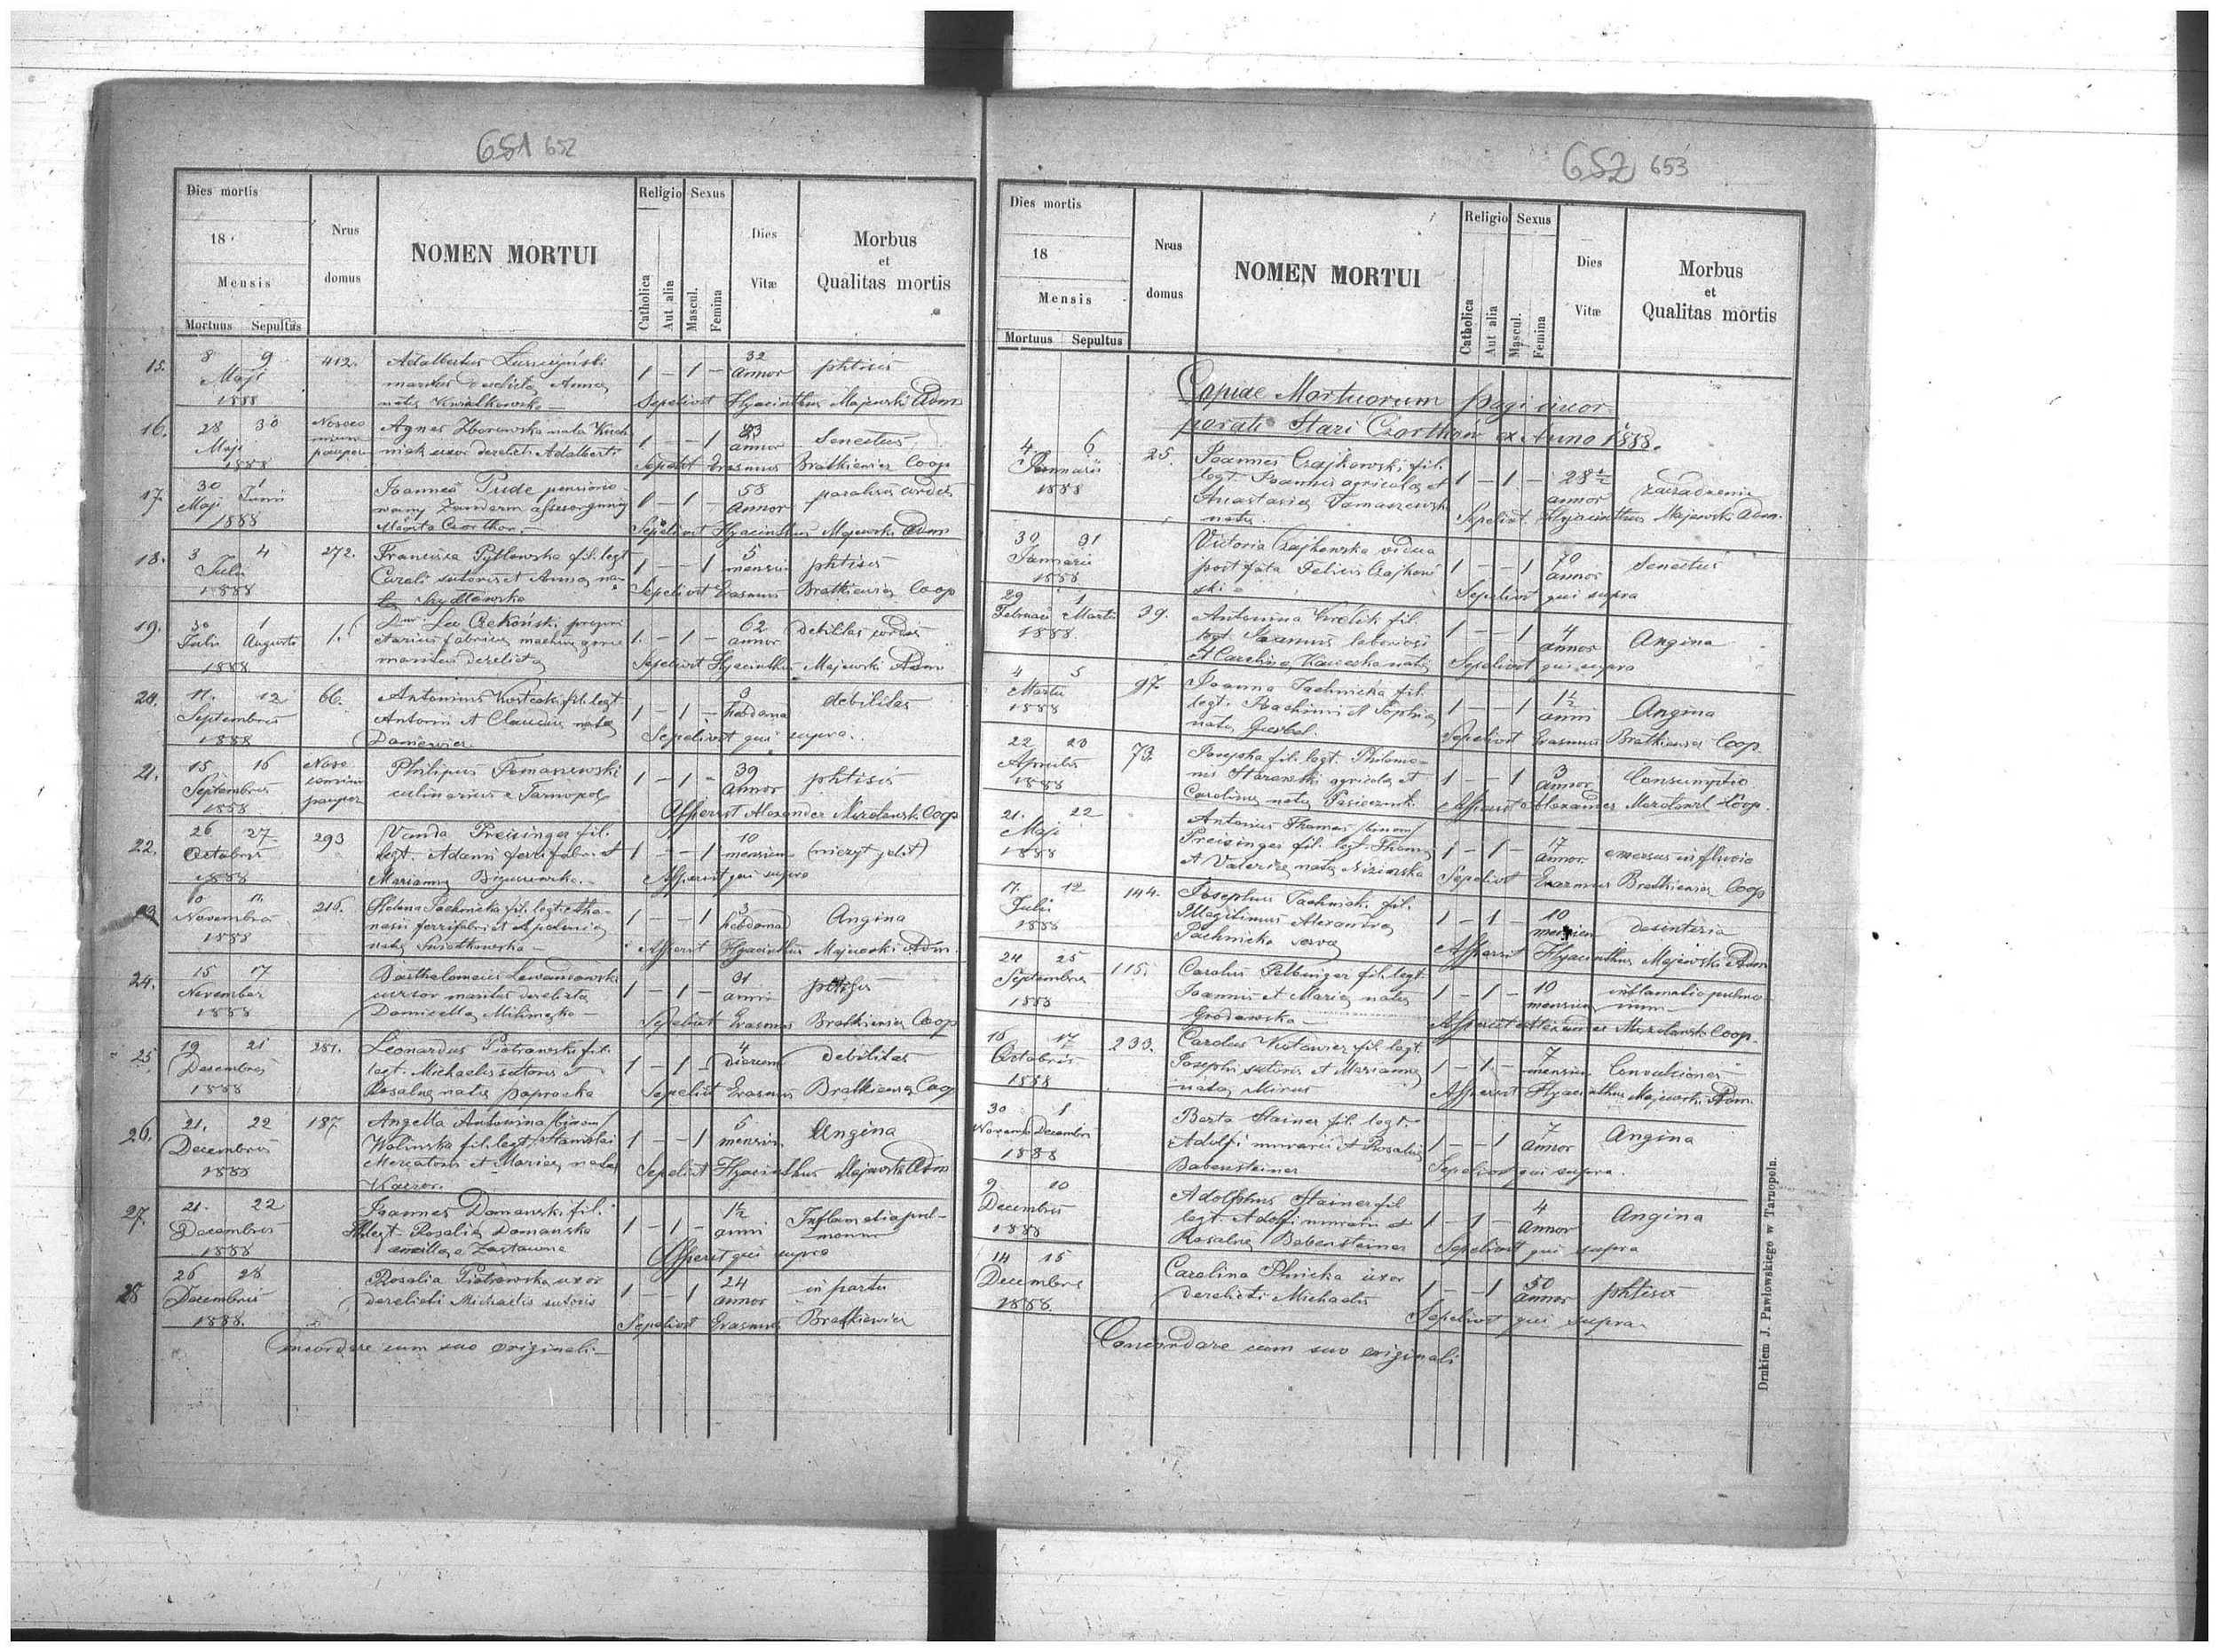 651 652
Dies mortis
18
Mensis
Mortuus Sepultus
Nrus
domus
NOMEN MORTUI
Religio Sexus
Catholica
Aut alia
Mascul.
Femina
Dies
Vitæ
Morbus
et
Qualitas mortis
15. 8 9 412. Adalbertus 32
Maji maritus derelicta Anna 1 – 1 – annor phtisis
1888 nata Kwiatkowska – Sepelivit Hyacinthus Majewski Adm
16. 28 30 Agnes Zborowska nata 83
Maji pauper uxor derelicti Adalberti 1 – – 1 annor Senectus
1888 Sepeliit Erasmus Bratkiewicz Coop
17. 30 1 Joannes Pude 58
Maji Junii 1 – 1 – annor paralisis cordis
1888 Sepelivit Hyacinthus Majewski Adm
18. 3 4 272. Francisca Pytlowska fil. legt 5
Julii Caroli sutoris et Anna na- 1 – – 1 mensium phtisis
1888 ta Szydłowska Sepelivit Erasmus Bratkiewicz Coop
19. 30 1 1. Leo 62
Julii Augusti 1. – 1 – annor debilitas cordis
1888 maritus derelicta Sepelivit Hyacinthus Majewski Adm
20. 11. 12 66. Antonius fil. legt 3 debilitas
Septembris Antonii et nata 1 – 1 – hebdoma
1888 Daniewicz. Sepelivit qui supra.
21. 15 16 Philipus Tomaszewski 39
Septembris culinarius e Tarnopol 1 – 1 – annor phtisis
1888 pauper Asseruit Alexander Coop
22. 26 27 293 Vanda Preisinger fil. 10
Octobris legt. Adami ferrifabri et 1 – – 1 mensium
1888 Marianna Asseruit qui supra
23 10 11 216. Helena Tachnicka fil. legt. Atha- 3
Novembris nasii ferrifabri et 1 – – 1 hebdoma Angina
1888 nata Asseruit Hyacinthus Majewski Adm
24. 15 17 Bartholomeus Lewandowski 31
November cursor maritus derelicta 1 – 1 – annis
1888 Sepelivit Erasmus Bratkiewicz Coop
25. 19 21 281. Leonardus Piotrowski fil. 4
Decembris legt. Michaelis sutoris et 1 – 1 – dierum debilitas
1888 Rosalia nata Paprocka Sepelivit Erasmus Bratkiewicz Coop
26. 21. 22 187 Angella Antonina /binom/ 5
Decembris Wolinska fil. legt. Stanislai 1 – – 1 mensium Angina
1888 Mercatoris et Maria nata Sepelivit Hyacinthus Majewski Adm
27. 21. 22 Joannes Domanski fil. 1½
Decembris Illegt. Rosalia Domanska 1 – 1 – anni Inflamatia pul-
1888 ancilla e Zastawne Asseruit qui supra monum
28 26 28 Rosalia Piotrowska uxor 24
Decembris derelicti Michaelis sutoris 1 – – 1 annor in partu
1888. Sepelivit Erasmus Bratkiewicz
Concordare cum suo originali –
652 653
Dies mortis
18
Mensis
Mortuus Sepultus
Nrus
domus
NOMEN MORTUI
Religio Sexus
Catholica
Aut alia
Mascul.
Femina
Dies
Vitæ
Morbus
et
Qualitas mortis
Copiae Mortuorum pagi incor
porati Stari Czortków ex Anno 1888.
4 6 25. Joannes Czajkowski fil.
Januarii legt. Joannis agricola et 1 – 1 – 28½
1888 Anastasia Tomaszewska annor
nata. Sepelivit Hyacinthus Majewski Adm.
30 31 Victoria Czajkowska vidua 70
Januarii post fata Felicis Czajkow 1 – – 1 annor Senectus
1888 ski – Sepelivit qui supra
29 1 39. Antonina fil. 4
Februarii Martii legt. Joannis laboriosi 1 – – 1 annor Angina
1888 et Carolina nata Sepelivit qui supra
4 5 97. Joanna Tachnicka fil. 1½
Martii legt. Joachimi et Sophia 1 – – 1 anni Angina
1888 nata Sepelivit Erasmus Bratkiewicz Coop.
22 23 73. Josepha fil. legt. Philemo- 3
Aprilis nis agricola et 1 – – 1 annor Consumptio
1888 Carolina nata Asseruit Alexander Coop.
21. 22 Antonius Thomas /binom/ 17
Maji Preisinger fil. legt. Thoma 1 – 1 – annor emersus in fluvio
1888 et Valeria nata Nizinska Sepelivit Erazmus Bratkiewicz Coop
12 144. Josephus Tachnicki fil. 10
Julii Illegitimus Alexandra 1 – 1 – mensium desinteria
1888 Tachnicka serva Asseruit Hyacinthus Majewski Adm
24 25 115. Carolus fil. legt 10 inflamatio pulmo
Septembris Joannis et Maria nata 1 – 1 – mensium num –
1888 Grodowska – Asseruit Alexander Coop.
16 17 233. Carolus fil. legt. 7
Octobris Josephi sutoris et Marianna 1 – 1 – mensium Convulsiones
1888 nata Asseruit Hyacinthus Majewski Adm.
30 1 Berta Stainer fil. legt. 7
Novemb Decembri Adolfi murarii et Rosalia 1 – – 1 annor Angina
1888 Babensteiner Sepelivit qui supra.
9 10 Adolphus Stainer fil 4
Decembris legt. Adolfi murarii et 1 – 1 – annor Angina
1888 Rosalia Babensteiner Sepelivit qui supra
14 15 Carolina uxor 50
Decembris derelicti Michaelis 1 – – 1 annor phtisis
1888. Sepelivit qui supra
Concordare cum suo originali
Drukiem J. Pawłowskiego w Tarnopolu.